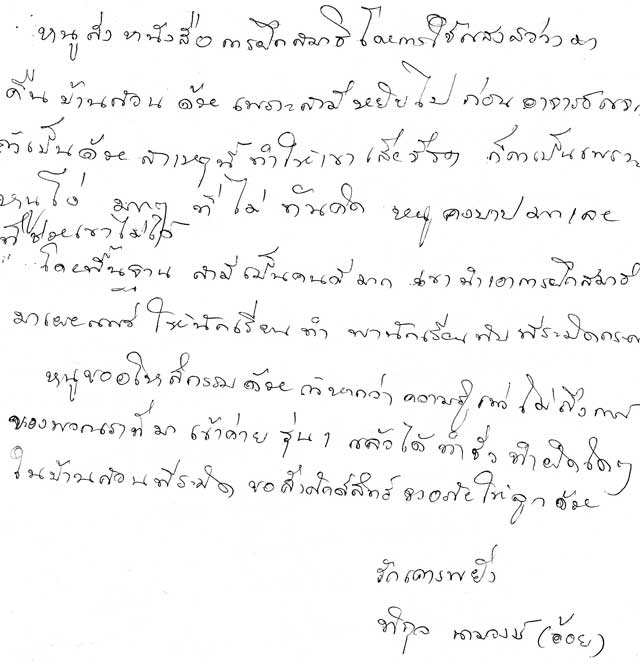 หนูส่งหนังสือการฝึกสมาธิโดยการใช้แสงสว่างมา
คืนบ้านสวนด้วย เพราะสามีหยิบไปก่อน อาจารย์
ถ้าเป็นด้วยสาเหตุนี้ทำให้เขาเสียชีวิต ก็คงเป็นเพราะ
หนูโง่ มากๆ ที่ไม่ทันคิด หนูคงบาปมากเลย
ที่ช่วยเขาไม่ได้
โดยพื้นฐาน สามีเป็นคนดีมาก เขานำเอาการฝึกสมาธิ
มาเผยแพร่ ให้นักเรียนทำ พานักเรียนพับพีระมิดกระดาษ
หนูขออโหสิกรรมด้วย ถ้าหากว่าความรู้เท่าไม่ถึงการณ์
ของพวกเราที่มาเข้าค่าย รุ่น 1 แล้วได้ทำชั่ว ทำผิดใดๆ
ในบ้านสวนพีระมิด ขอสิ่งศักดิ์สิทธิ์ ขออภัยให้ลูกด้วย
รักเคารพยิ่ง
พิกุล นามวงษ์ (อ้อย)